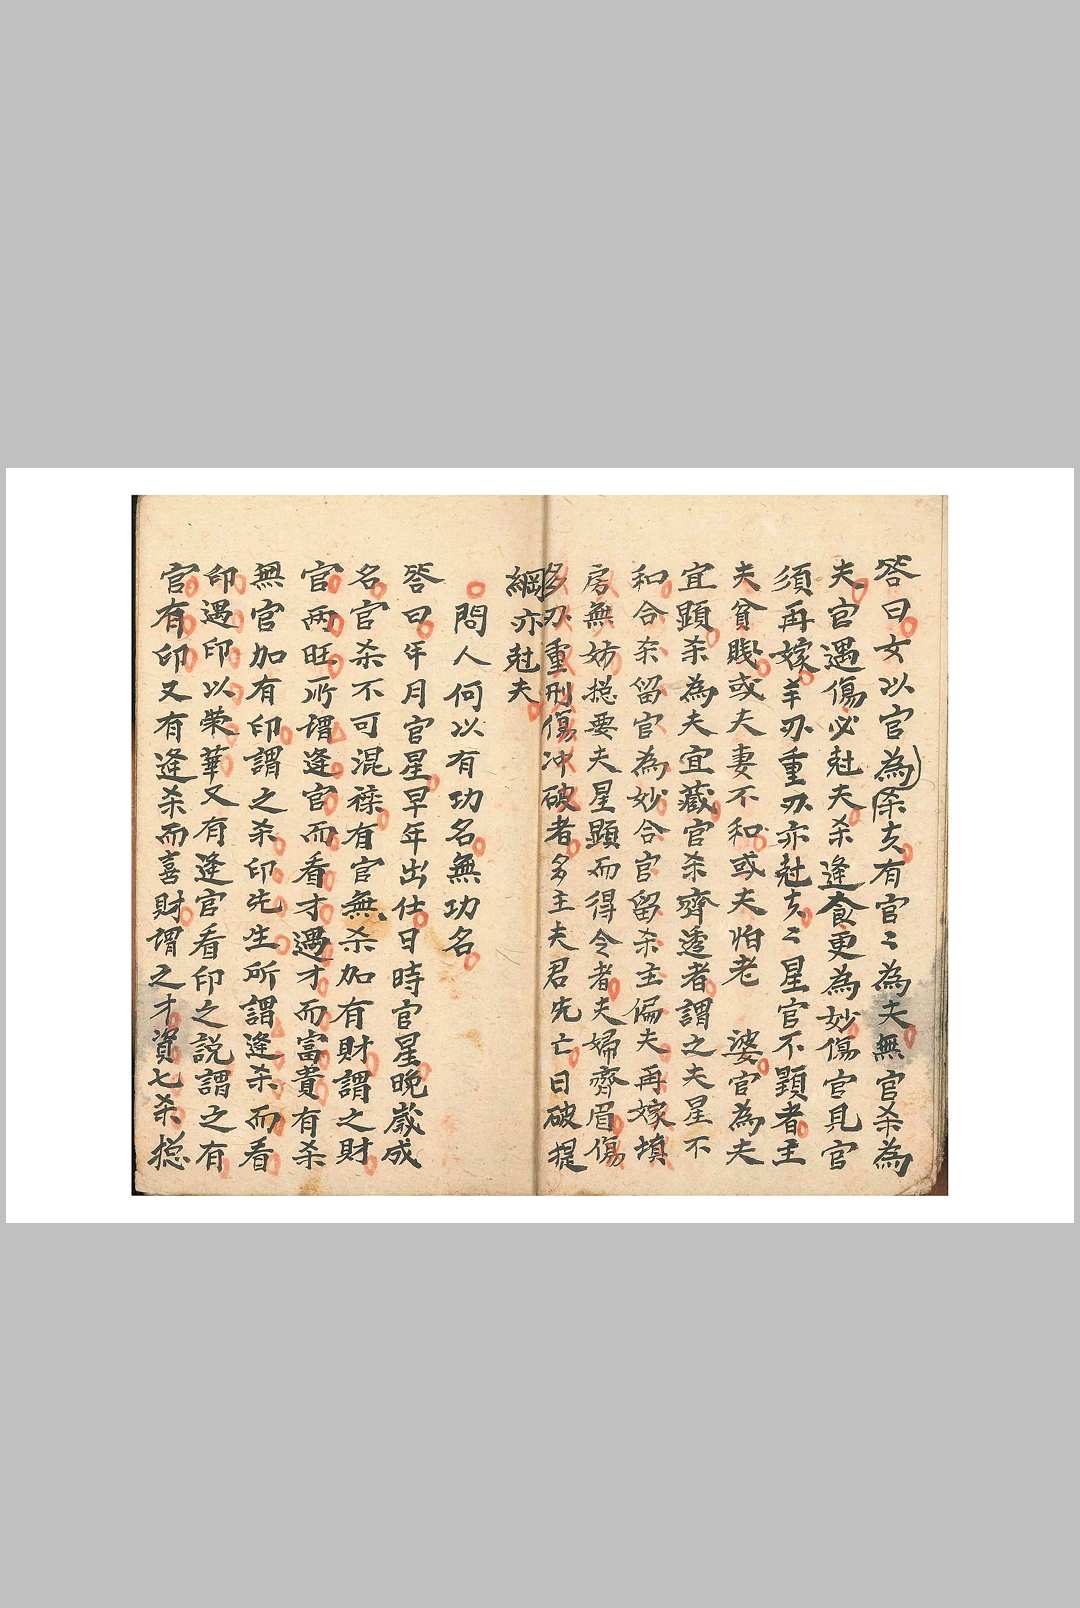 答曰女以官為夫有官二為夫無官杀為
夫官遇傷必尅夫杀逢食更為妙傷官見官
須再嫁羊刃重刃亦尅夫二星官不顕者主
夫貧賎或夫妻不和或夫怕老婆官為夫
宜顕杀為夫宜藏官杀齊透者謂之夫星不
和合杀留官為妙合官留杀主偏夫再嫁填
房無妨揔要夫星顕而得令者夫婦齊眉傷
多刃重刑傷冲破者多主夫君先亡日破提
綱亦尅夫
問人何以有功名無功名
答曰年月官星早年出仕日時官星晚歲成
名官杀不可混襍有官無杀加有財謂之財
官两旺所谓逢官而看才遇才而富貴有杀
無官加有印謂之杀印先生所謂逢杀而看
印遇印以荣華又有逢官看印之説謂之有
官有印又有逢杀而喜財謂之才資七杀揔